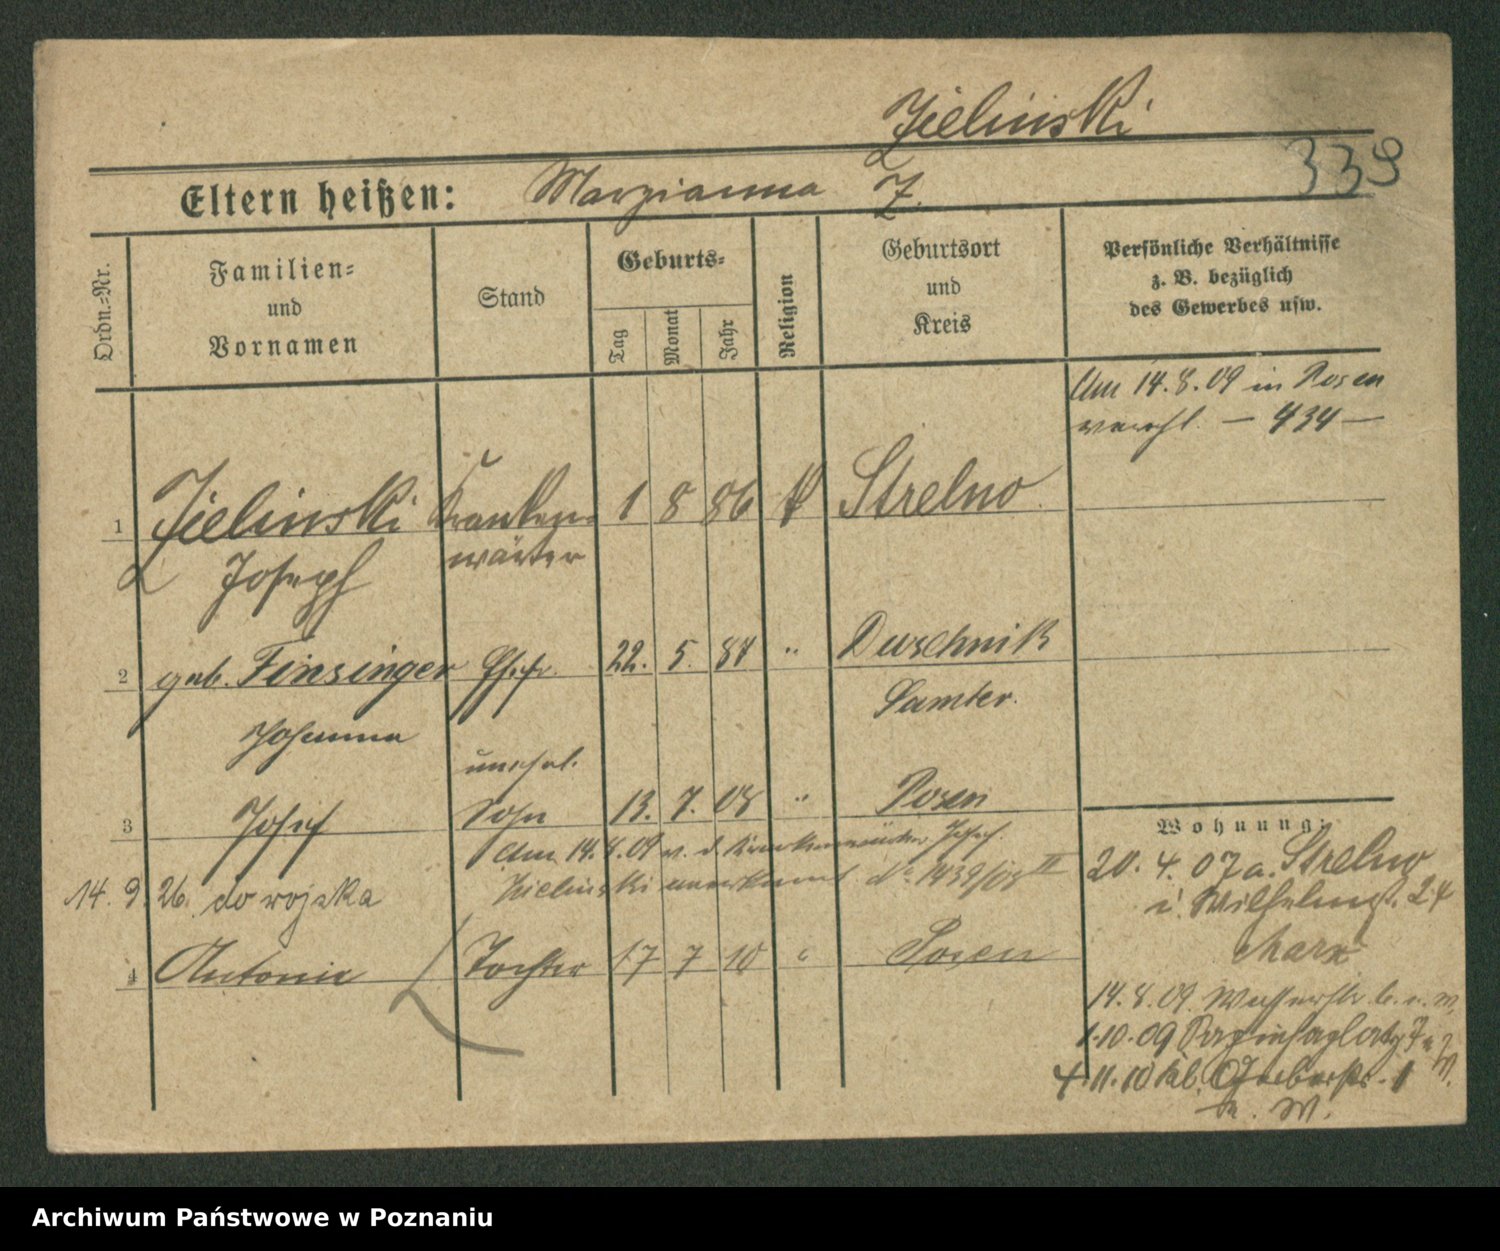 Zielinski
339
Eltern heißen: Marzianna Z.
Ordn.-Nr.
Familien-
und
Vornamen
Stand
Geburts-
Tag
Monat
Jahr
Religion
Geburtsort
und
Kreis
Persönliche Verhältnisse
z. B. bezüglich
des Gewerbes usw.
Am 14.8.09 in Posen
verehl. — 434 —
1 Zielinski Kranken- 1 8 86 k Strelno
Joseph wärter
2 geb. Finsinger Ehefr. 22. 5. 87 " Duschnik
Johanna Samter.
unehel.
3 Josef Sohn 13. 7. 08 " Posen
Am 14.8.09 v. d. Krankenwärter Josef
Zielinski anerkannt No 1439/08 II
14. 9. 26. do wojska
4 Antonie Tochter 17 7 10 " Posen
Wohnung:
20. 4. 07 a. Strelno
i. Wilhelmst. 24
14.8.09. Wasserstr.
1.10.09
4.11.10 kl. Gerberstr. 1